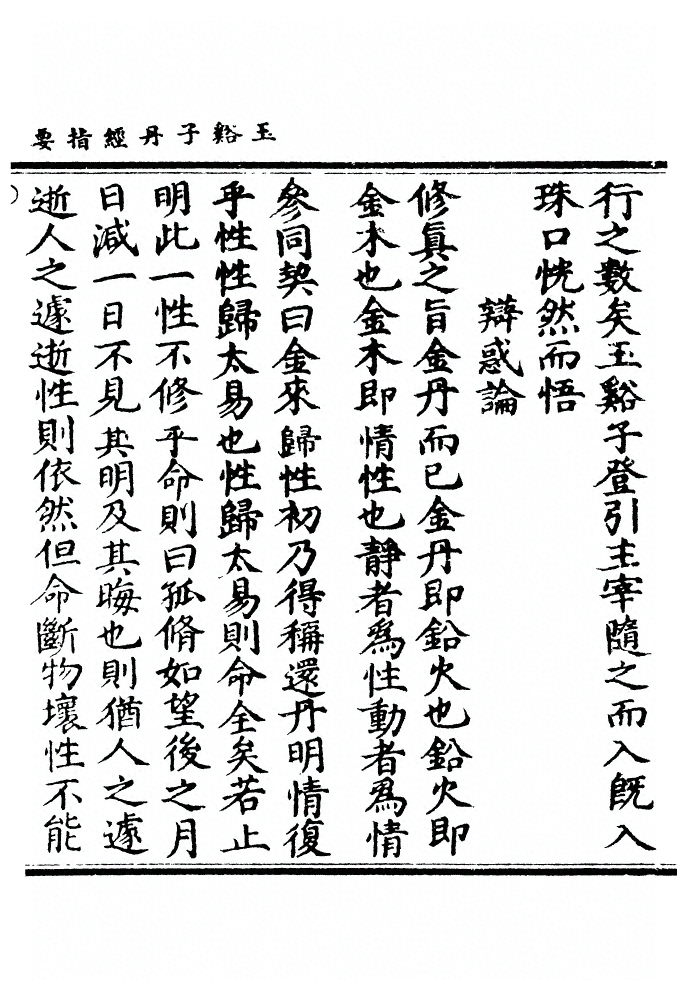 玉谿子丹經指要
行之數矣玉谿子登引主宰隨之而入旣入
珠口恍然而悟
辯惑論
修眞之旨金丹而已金丹即鉛火也鉛火即
金木也金木即情性也靜者爲性動者爲情
參同契曰金來歸性初乃得稱還丹明情復
乎性性歸太易也性歸太易則命全矣若止
明此一性不修乎命則曰孤脩如望後之月
日減一日不見其明及其晦也則猶人之遽
逝人之遽逝性則依然但命斷物壞性不能